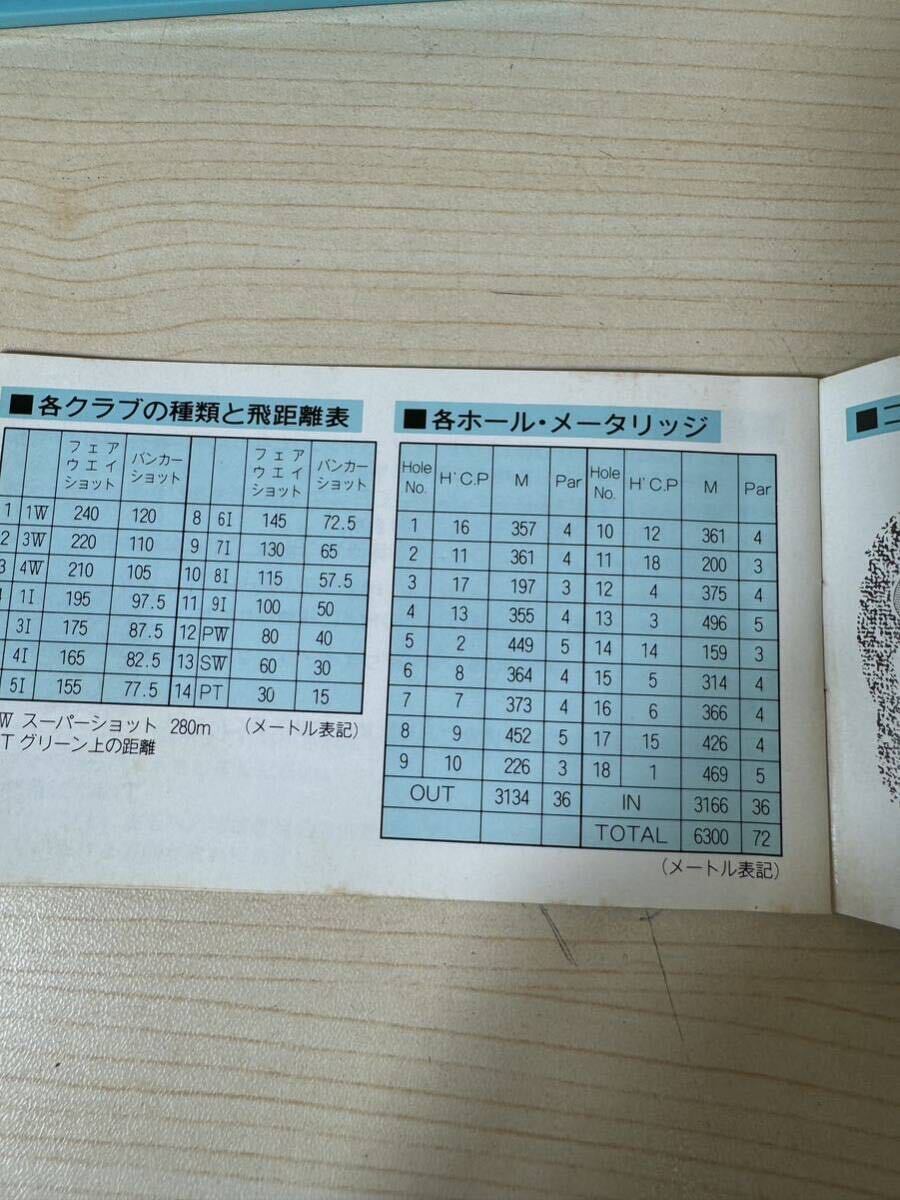 ■各クラブの種類と飛距離表
フェアウエイショット バンカーショット フェアウエイショット バンカーショット
1 1W 240 120 8 6I 145 72.5
2 3W 220 110 9 7I 130 65
3 4W 210 105 10 8I 115 57.5
1I 195 97.5 11 9I 100 50
3I 175 87.5 12 PW 80 40
4I 165 82.5 13 SW 60 30
5I 155 77.5 14 PT 30 15
W スーパーショット 280m (メートル表記)
T グリーン上の距離
■各ホール・メータリッジ
Hole No. H'C.P M Par Hole No. H'C.P M Par
1 16 357 4 10 12 361 4
2 11 361 4 11 18 200 3
3 17 197 3 12 4 375 4
4 13 355 4 13 3 496 5
5 2 449 5 14 14 159 3
6 8 364 4 15 5 314 4
7 7 373 4 16 6 366 4
8 9 452 5 17 15 426 4
9 10 226 3 18 1 469 5
OUT 3134 36 IN 3166 36
TOTAL 6300 72
(メートル表記)
■コ